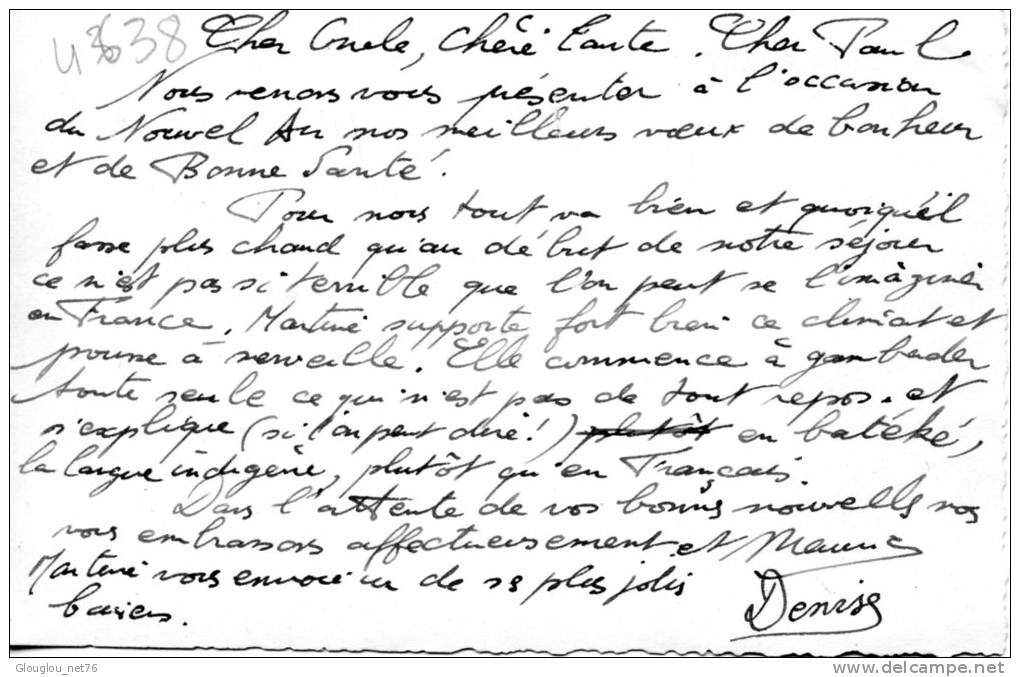 Cher Oncle, Chère Tante, Cher Paul
Nous venons vous présenter à l'occasion
du Nouvel An nos meilleurs vœux de bonheur
et de Bonne Santé.
Pour nous tout va bien et quoiqu'il
fasse plus chaud qu'au début de notre séjour
ce n'est pas si terrible que l'on peut se l'imaginer
en France. Martine supporte fort bien ce climat et
pousse à merveille. Elle commence à gambader
toute seule ce qui n'est pas de tout repos. et
s'explique (si l'on peut dire!) plutôt en batéké,
la langue indigène, plutôt qu'en Français.
Dans l'attente de vos bonnes nouvelles nos
vous embrassons affectueusement et
Martine vous envoie un de ses plus jolis
baisers.
Denise
Glouglou_net76
delcampe.net